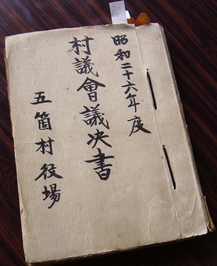 昭和二十六年度
村議會議决書
五箇村役場